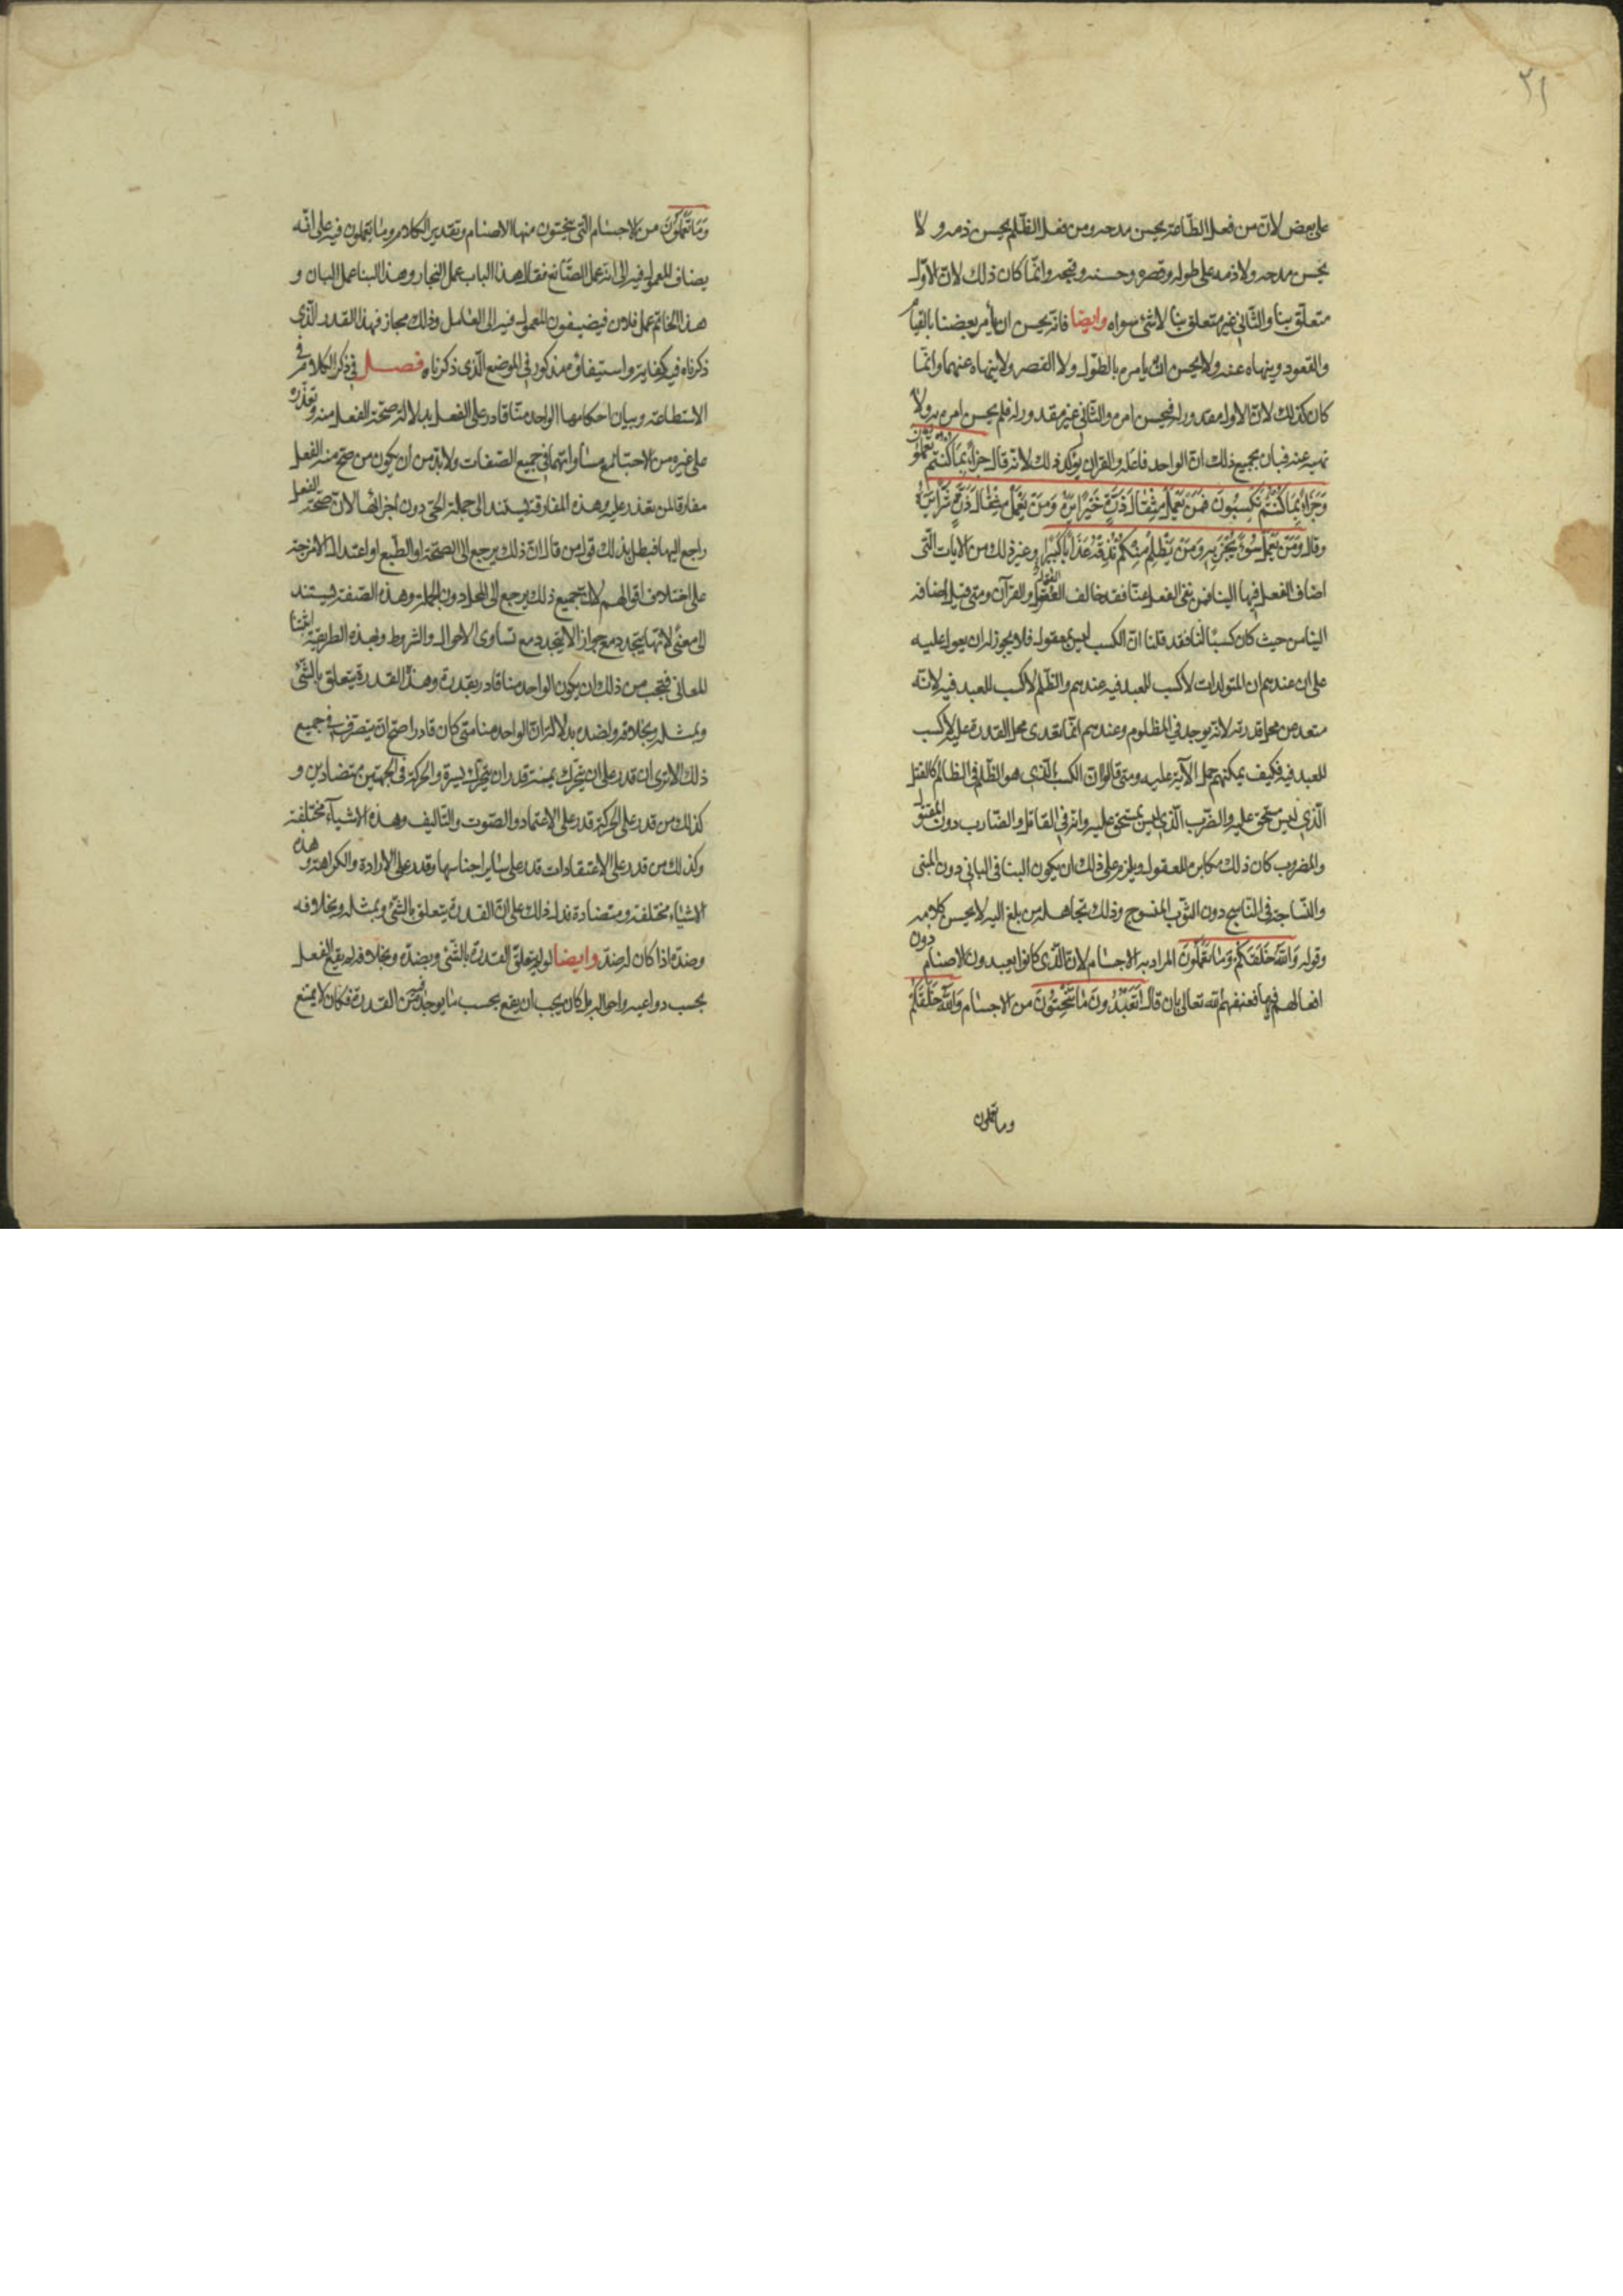 ٢١
على بعض لان من فعل الطّاعة يحسن مدحه ومن فعل الظّلم يحسن ذمه ولا
يحسن مدحه ولا ذمه على طوله وقصره وحسنه وقبحه وانّما كان ذلك لان الاوّل
متعلّق بنا والثّاني غير متعلق بنا لا شئ سواه وايضا فانّه يحسن ان يأمر بعضنا بالقيام
والقعود وينهاه عنه ولا يحسن ان يامره بالطّول ولا القصر ولا ينهاه عنهما وانّما
كان كذلك لان الاول مقدور له فيحسن امره والثّاني غير مقدور له فلم يحسن امره به ولا
نهيه عنه فبان بجميع ذلك انّ الواحد فاعل والقران يؤكد ذلك لانّه قال جزاءً بما كنتم تعملون
وَجَزَاءً بِمَا كُنتُم تَكسِبُونَ فَمَن يَعمَل مِثقَالَ ذَرَّةٍ خَيرًا يَرَه وَمَن يَعمَل مِثقَالَ ذَرَّةٍ شَرًّا يَرَه
وقال وَمَن يَعمَل سُوءً يُجزَ بِهِ وَمَن يَظلِم مِنكُم نُذِقهُ عَذَابًا كَبِيرًا وغير ذلك من الايات الّتى
اضاف الفعل فيها الينا فمن نفى الفعل عنّا فقد خالف العقول والقرآن ومتى قيل اضافه
الينا من حيث كان كسبًا لنا فقد قلنا انّ الكسب ليس بمعقول فلا يجوز له ان يعول عليه
على ان عندهم ان المتولدات لا كسب للعبد فيه عندهم والظّلم لا كسب للعبد فيه لانّه
متعد من محل قدرته لانه يوجد في المظلوم وعندهم انّما تعدى محل القدرة عليه لا كسب
للعبد فيه فكيف يمكنهم حمل الآية عليه ومتى قالوا انّ الكسب الّذى هو الظّلم فى الظالم كالقتل
الّذي ليس يستحق عليه والضّرب الّذي ليس يستحق عليه وانه في القاتل والضّارب دون المقتول
والمضروب كان ذلك مكابرة للعقول ويلزم على ذلك ان يكون البنا فى الباني دون المبنى
والنّساجة فى النّاسج دون الثّوب المنسوج وذلك تجاهل من بلغ اليه لا يحسن كلامه
وقوله وَاللهُ خَلَقَكُم وَمَا تَعمَلُونَ المراد به الاجسام لان الّذى كانوا يعبدون الاصنام دون
افعالهم فيها فعنفهم الله تعالى بان قال اَتَعبُدُونَ مَا تَنحِتُونَ من الاجسام وَاللهُ خَلَقَكُم
وما تعملون
وَمَا تَعمَلُونَ من الاجسام الّتى تنحتون منها الاصنام وتقدير الكلام وما تعملون فيه على انّه
يضاف المعمول فيه الى انه عمل الصّانع فيقال هذا الباب عمل النجار وهذا البنا عمل البان و
هذا الخاتم عمل فلان فيضيفون المعمول فيه الى العامل وذلك مجاز فهذا القدر الّذى
ذكرناه فيه كفاية واستيفاؤه مذكور فى الموضع الّذى ذكرناه فصل في ذكر الكلام في
الاستطاعة وبيان احكامها الواحد منّا قادر على الفعل بدلالة صحّة الفعل منه وتعذّره
على غيره من الاحيّاء مع مساواتهما في جميع الصّفات ولا بدّ من أن يكون من صح منه الفعل
مفارقا لمن تعذر عليه وهذه المفارقة تستند الى جملة الحيّ دون اجزائها لان صحّة الفعل
راجع اليها فبطل بذلك قول من قال انّ ذلك يرجع الى الصّحّة او الطّبع او اعتدال الامزجة
على اختلاف اقوالهم لان جميع ذلك يرجع الى المحل دون الجملة وهذه الصّفة تستند
الى معنًى لانّها يتجدد مع جواز الا يتجدد مع تساوى الاحوال والشّروط وبهذه الطريقة اثبتنا
المعاني فيجب من ذلك ان يكون الواحد منا قادر بقدرة وهذه القدرة يتعلق بالشّئ
وبمثله وبخلافه ولضده بدلالة انّ الواحد منا متى كان قادرا صح ان يتصرف في جميع
ذلك الا ترى ان من قدر على ان يتحرّك يمنة قدر ان يتحرّك يسرة والحركة فى الجهتين متضادين و
كذلك من قدر على الحركة قدر على الاعتماد والصّوت والتّاليف وهذه الاشيآء مختلفة
وكذلك من قدر على الاعتقادات قدر على سائر اجناسها وقدر على الارادة والكراهة وهذه
الاشياء مختلفة ومتضادة فدل ذلك على انّ القدرة يتعلق بالشّئ وبمثله وبخلافه
وضدّه اذا كان له ضدّ وايضا لو لم يتعلق القدرة بالشّئ وبضدّه وبخلافه لم يقع الفعل
بحسب دواعيه واحواله بل كان يجب ان يقع بحسب ما يوجد فيه من القدرة فكان لا يمتنع